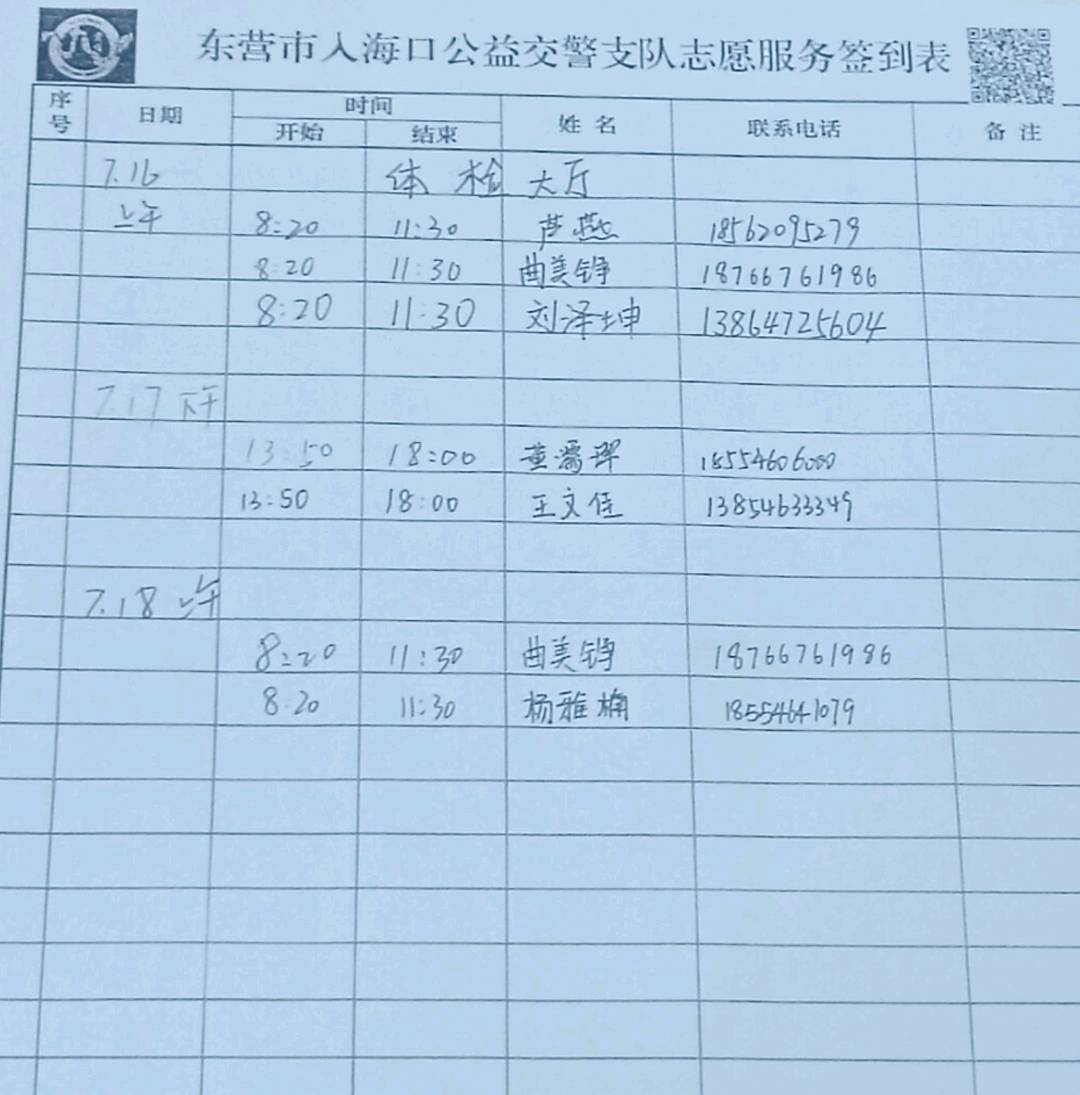 东营市入海口公益交警支队志愿服务签到表
序号 日期 时间 姓名 联系电话 备注
开始 结束
7.16 体检大厅
上午 8:20 11:30 芦燕 18562095279
8:20 11:30 曲美铮 18766761986
8:20 11:30 刘泽坤 13864725604
7.17 下午
13:50 18:00 黄 18554606000
13:50 18:00 王文佳 13854633349
7.18 上午
8:20 11:30 曲美铮 18766761986
8:20 11:30 杨雅楠 18554641079